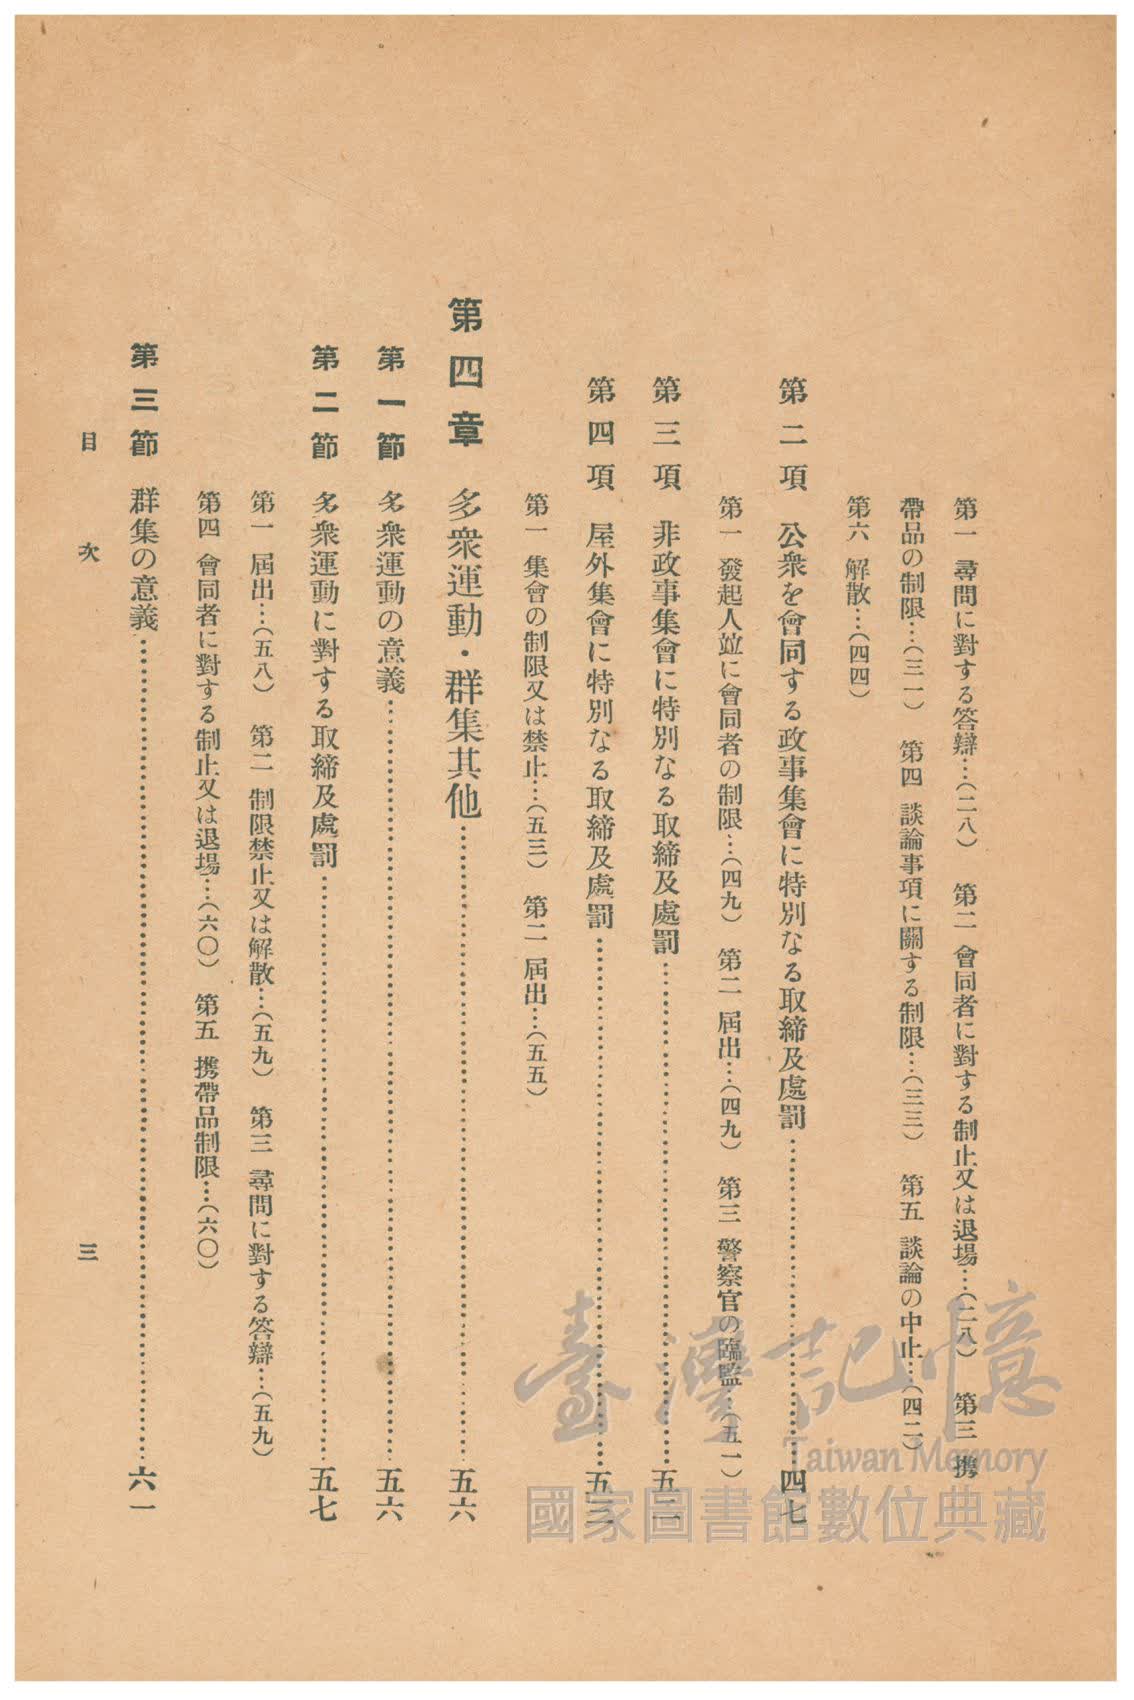 第一 尋問に對する答辯…(二八) 第二 會同者に對する制止又は退場…(二八) 第三 携
帶品の制限…(三一) 第四 談論事項に關する制限…(三三) 第五 談論の中止…(四二)
第六 解散…(四四)
第二項 公衆を會同する政事集會に特別なる取締及處罰……四七
第一 發起人竝に會同者の制限…(四九) 第二 屆出…(四九) 第三 警察官の臨監…(五一)
第三項 非政事集會に特別なる取締及處罰……五二
第四項 屋外集會に特別なる取締及處罰……五三
第一 集會の制限又は禁止…(五三) 第二 屆出…(五五)
第四章 多衆運動・群集其他……五六
第一節 多衆運動の意義……五六
第二節 多衆運動に對する取締及處罰……五七
第一 屆出…(五八) 第二 制限禁止又は解散…(五九) 第三 尋問に對する答辯…(五九)
第四 會同者に對する制止又は退場…(六〇) 第五 携帶品制限…(六〇)
第三節 群集の意義……六一
目次 三
臺灣記憶
Taiwan Memory
國家圖書館數位典藏